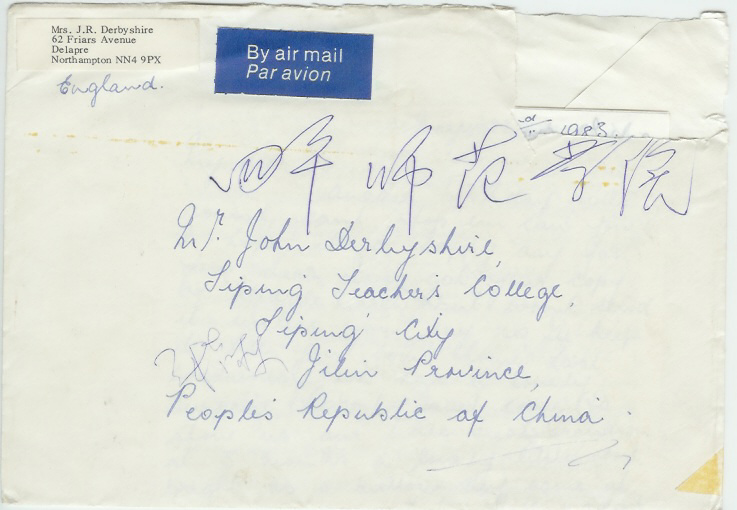 Mrs. J.R. Derbyshire
62 Friars Avenue
Delapre
Northampton NN4 9PX
England.
By air mail
Par avion
1983.
四平师范学院
Mr. John Derbyshire,
Siping Teacher's College,
Siping City
Jilin Province,
Peoples Republic of China.